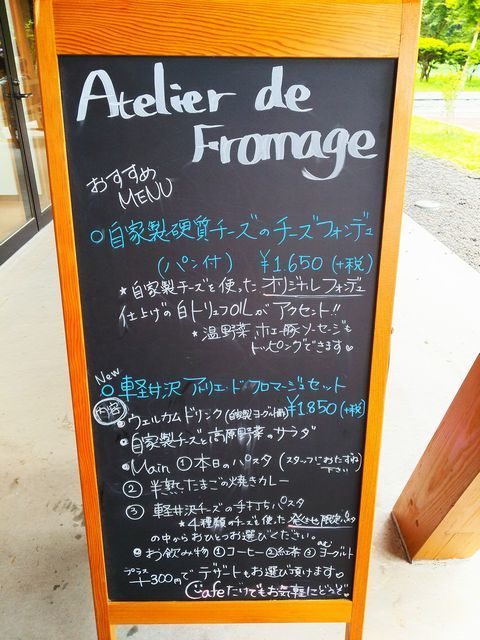 Atelier de
Fromage
おすすめ
MENU
○自家製硬質チーズのチーズフォンデュ
(パン付) ¥1,650 (+税)
★自家製チーズを使ったオリジナルフォンデュ
仕上げの白トリュフOILがアクセント!!
★温野菜、ホエー豚ソーセージも
トッピングできます♡
New
○軽井沢アトリエ・ド・フロマージュセット
内容 ¥1850(+税)
●ウェルカムドリンク(自家製ヨーグルト)
●自家製チーズと高原野菜のサラダ
●Main ①本日のパスタ (スタッフにおたずね下さい)
② 半熟たまごの焼きカレー
③ 軽井沢チーズの手打ちパスタ
★4種類のチーズを使った
の中からおひとつお選びください。
●お飲み物①コーヒー②紅茶③ヨーグルト
プラス
+300円でデザートもお選び頂けます♡
Cafeだけでもお気軽にどうぞ♡